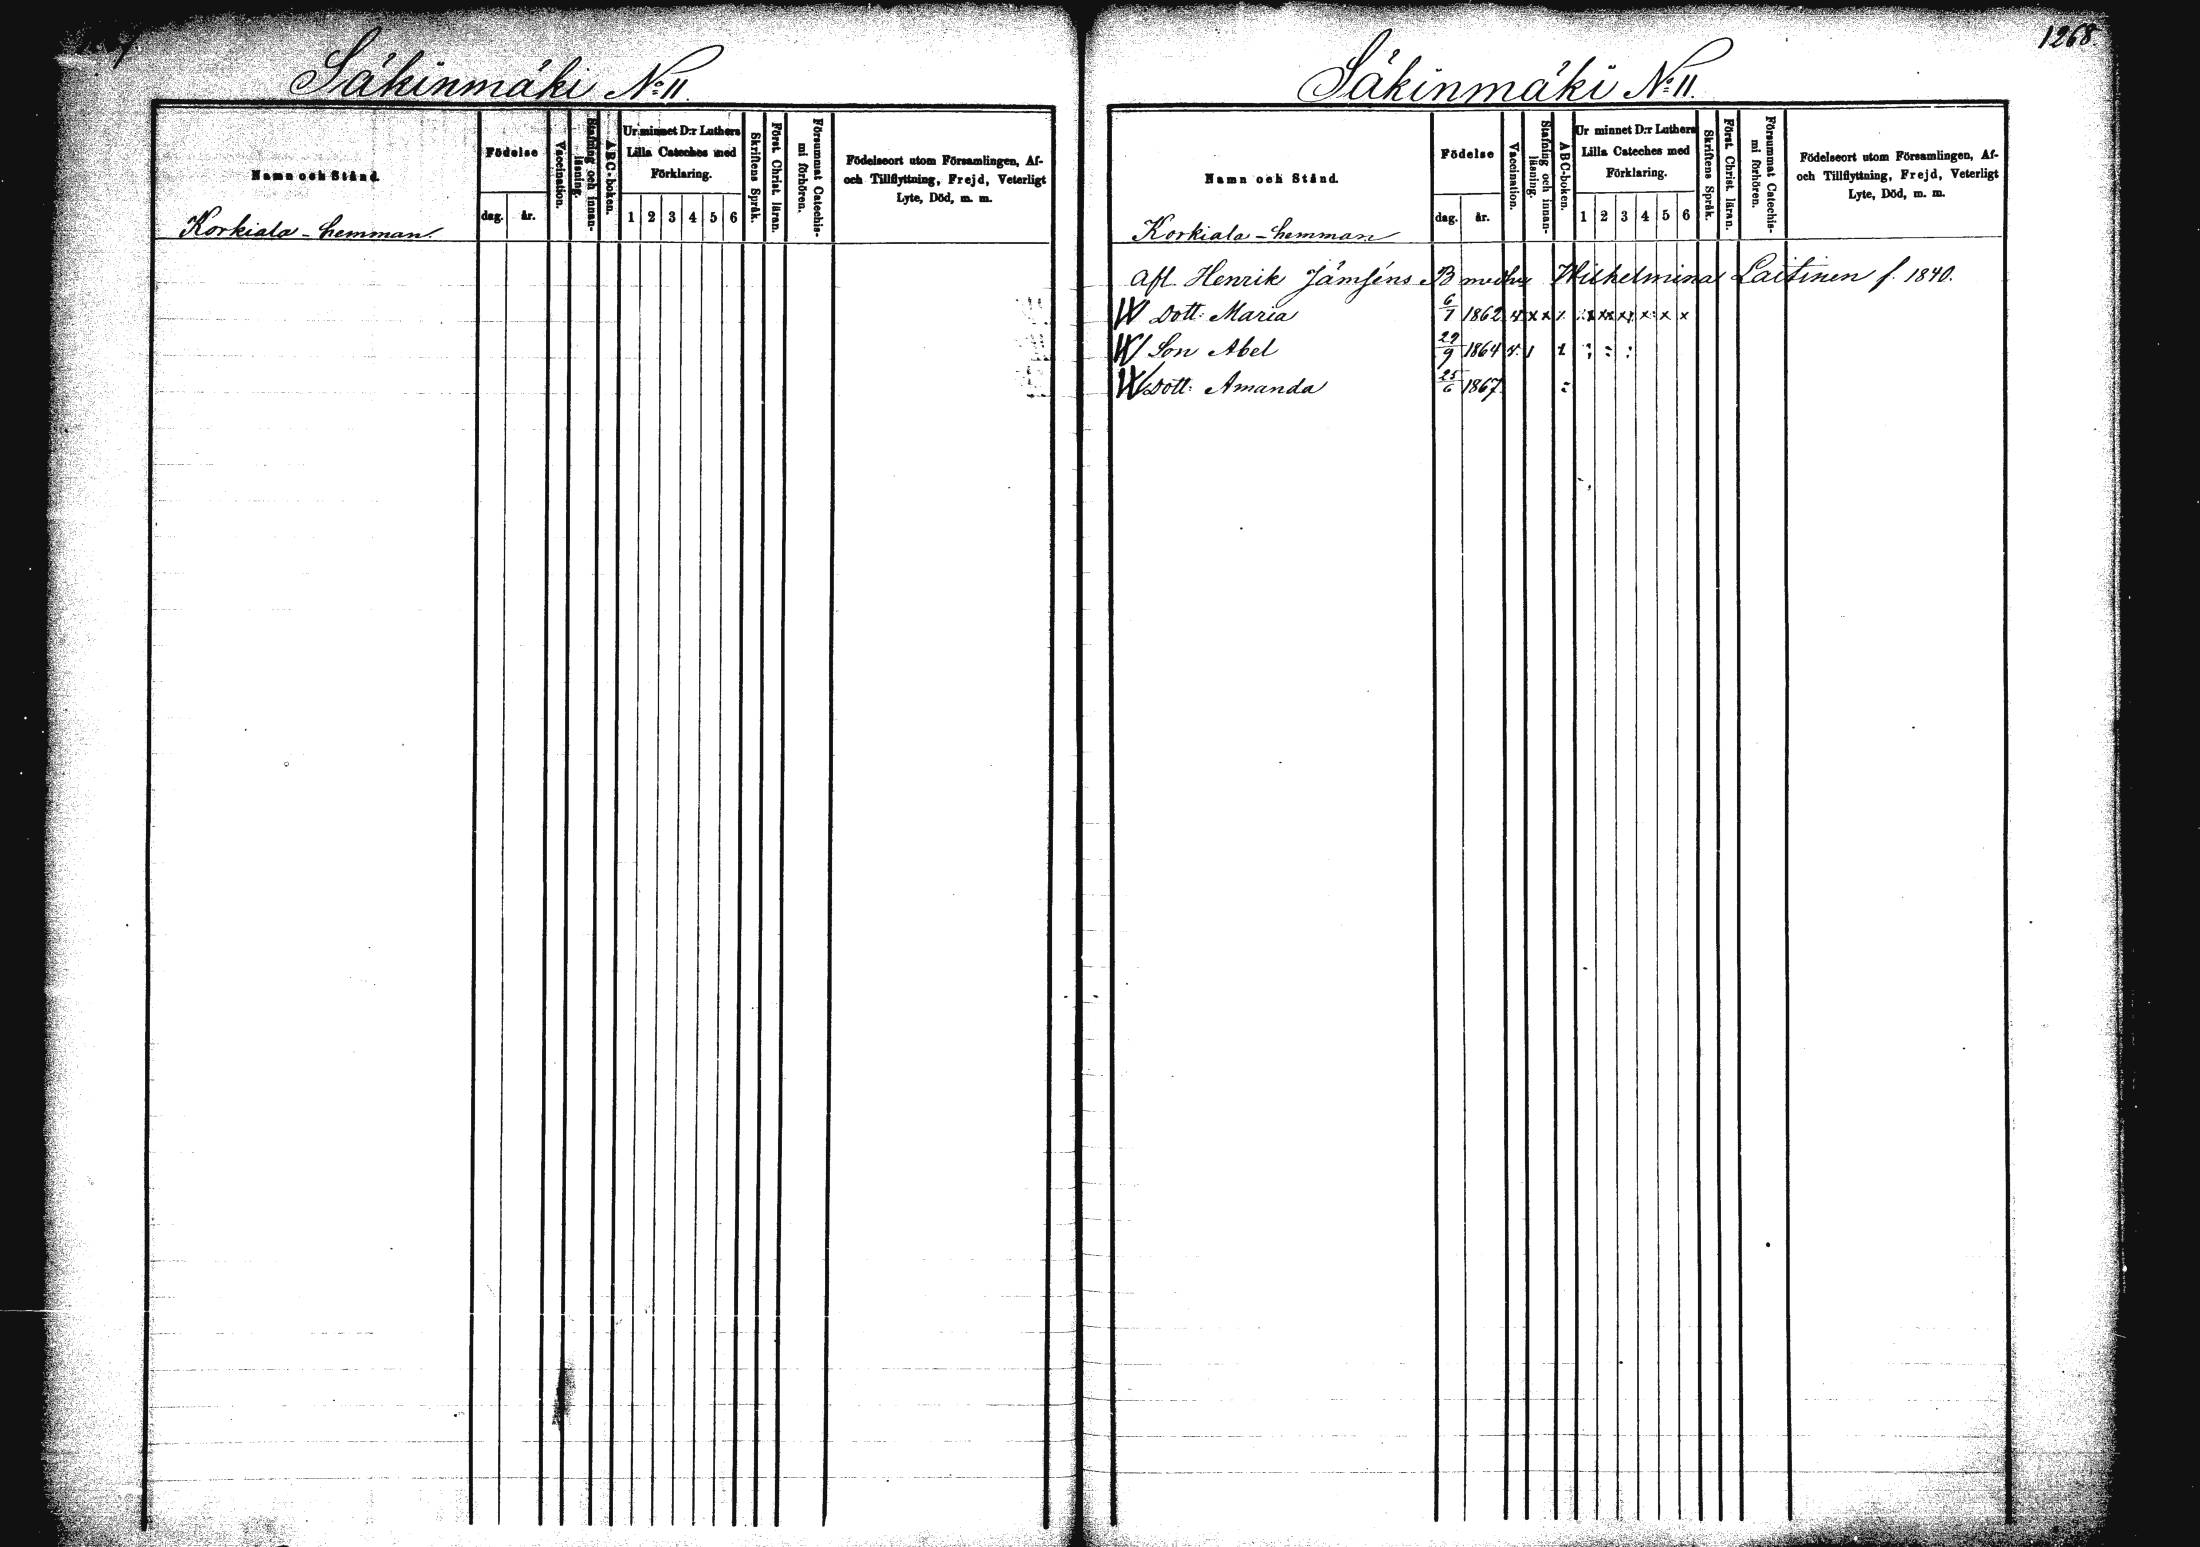 Säkinmäki No 11.
Namn och Stånd.
Födelse
dag.
år.
Vaccination.
Stafning och innan-
läsning.
ABC-boken.
Ur minnet D:r Luthers
Lilla Cateches med
Förklaring.
1 2 3 4 5 6
Skriftens Språk.
Först. Christ. läran.
Försummat Catechis-
mi förhören.
Födelseort utom Församlingen, Af-
och Tillflyttning, Frejd, Veterligt
Lyte, Död, m. m.
Korkiala - hemman.
1268.
Säkinmäki No 11.
Namn och Stånd.
Födelse
dag.
år.
Vaccination.
Stafning och innan-
läsning.
ABC-boken.
Ur minnet D:r Luthers
Lilla Cateches med
Förklaring.
1 2 3 4 5 6
Skriftens Språk.
Först. Christ. läran.
Försummat Catechis-
mi förhören.
Födelseort utom Församlingen, Af-
och Tillflyttning, Frejd, Veterligt
Lyte, Död, m. m.
Korkiala - hemman
Afl. Henrik Jämséns B Wilhelmina Laitinen f. 1840.
Dott: Maria 6/7 1862 v. x x x x x x x x
Son Abel 29/9 1864 v.
Dott: Amanda 25/6 1867